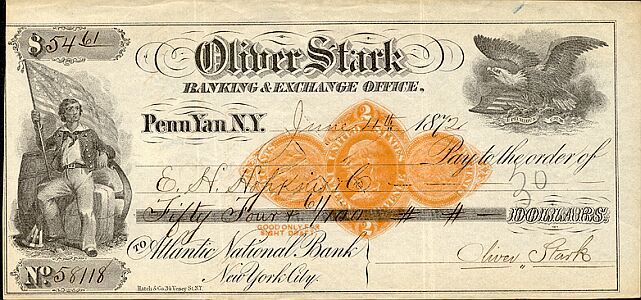 $ 54 61
Oliver Stark
BANKING & EXCHANGE OFFICE.
Penn Yan N.Y. June 4th 1872
Pay to the order of
E. H. Hopkins & Co
50
Fifty Four & 61/100 DOLLARS.
GOOD ONLY FOR
SIGHT DRAFT
TO Atlantic National Bank
New York City.
Oliver Stark
No. 58118
Hatch & Co. 34 Vesey St. N.Y.
2
UNITED STATES
2